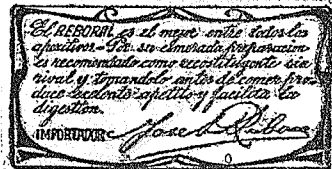 El REBORAL es el mejor entre todos los
aperitivos - Por su esmerada preparacion
es recomendado como reconstituyente sin
rival y tomandolo antes de comer pro-
duce excelente apetito y facilita la
digestion.
IMPORTADOR José Ribas